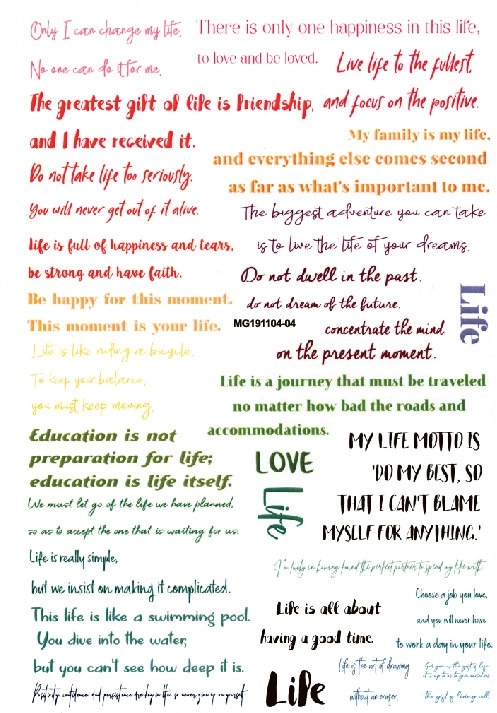 Only I can change my life.
No one can do it for me.
There is only one happiness in this life,
to love and be loved.
Live life to the fullest,
and focus on the positive.
The greatest gift of life is friendship,
and I have received it.
My family is my life,
and everything else comes second
as far as what's important to me.
Do not take life too seriously.
You will never get out of it alive.
The biggest adventure you can take
is to live the life of your dreams.
life is full of happiness and tears,
be strong and have faith.
Do not dwell in the past,
do not dream of the future,
concentrate the mind
on the present moment.
Life
Be happy for this moment.
This moment is your life.
MG191104-04
Life is like riding a bicycle.
To keep your balance,
you must keep moving.
Life is a journey that must be traveled
no matter how bad the roads and
accommodations.
Education is not
preparation for life;
education is life itself.
LOVE
Life
MY LIFE MOTTO IS
'DO MY BEST, SO
THAT I CAN'T BLAME
MYSELF FOR ANYTHING.'
We must let go of the life we have planned,
so as to accept the one that is waiting for us.
Life is really simple,
but we insist on making it complicated.
I'm lucky in having found the perfect partner to spend my life with.
This life is like a swimming pool.
You dive into the water,
but you can't see how deep it is.
Life is all about
having a good time.
Choose a job you love,
and you will never have
to work a day in your life.
Life
life is the art of drawing
without an eraser.